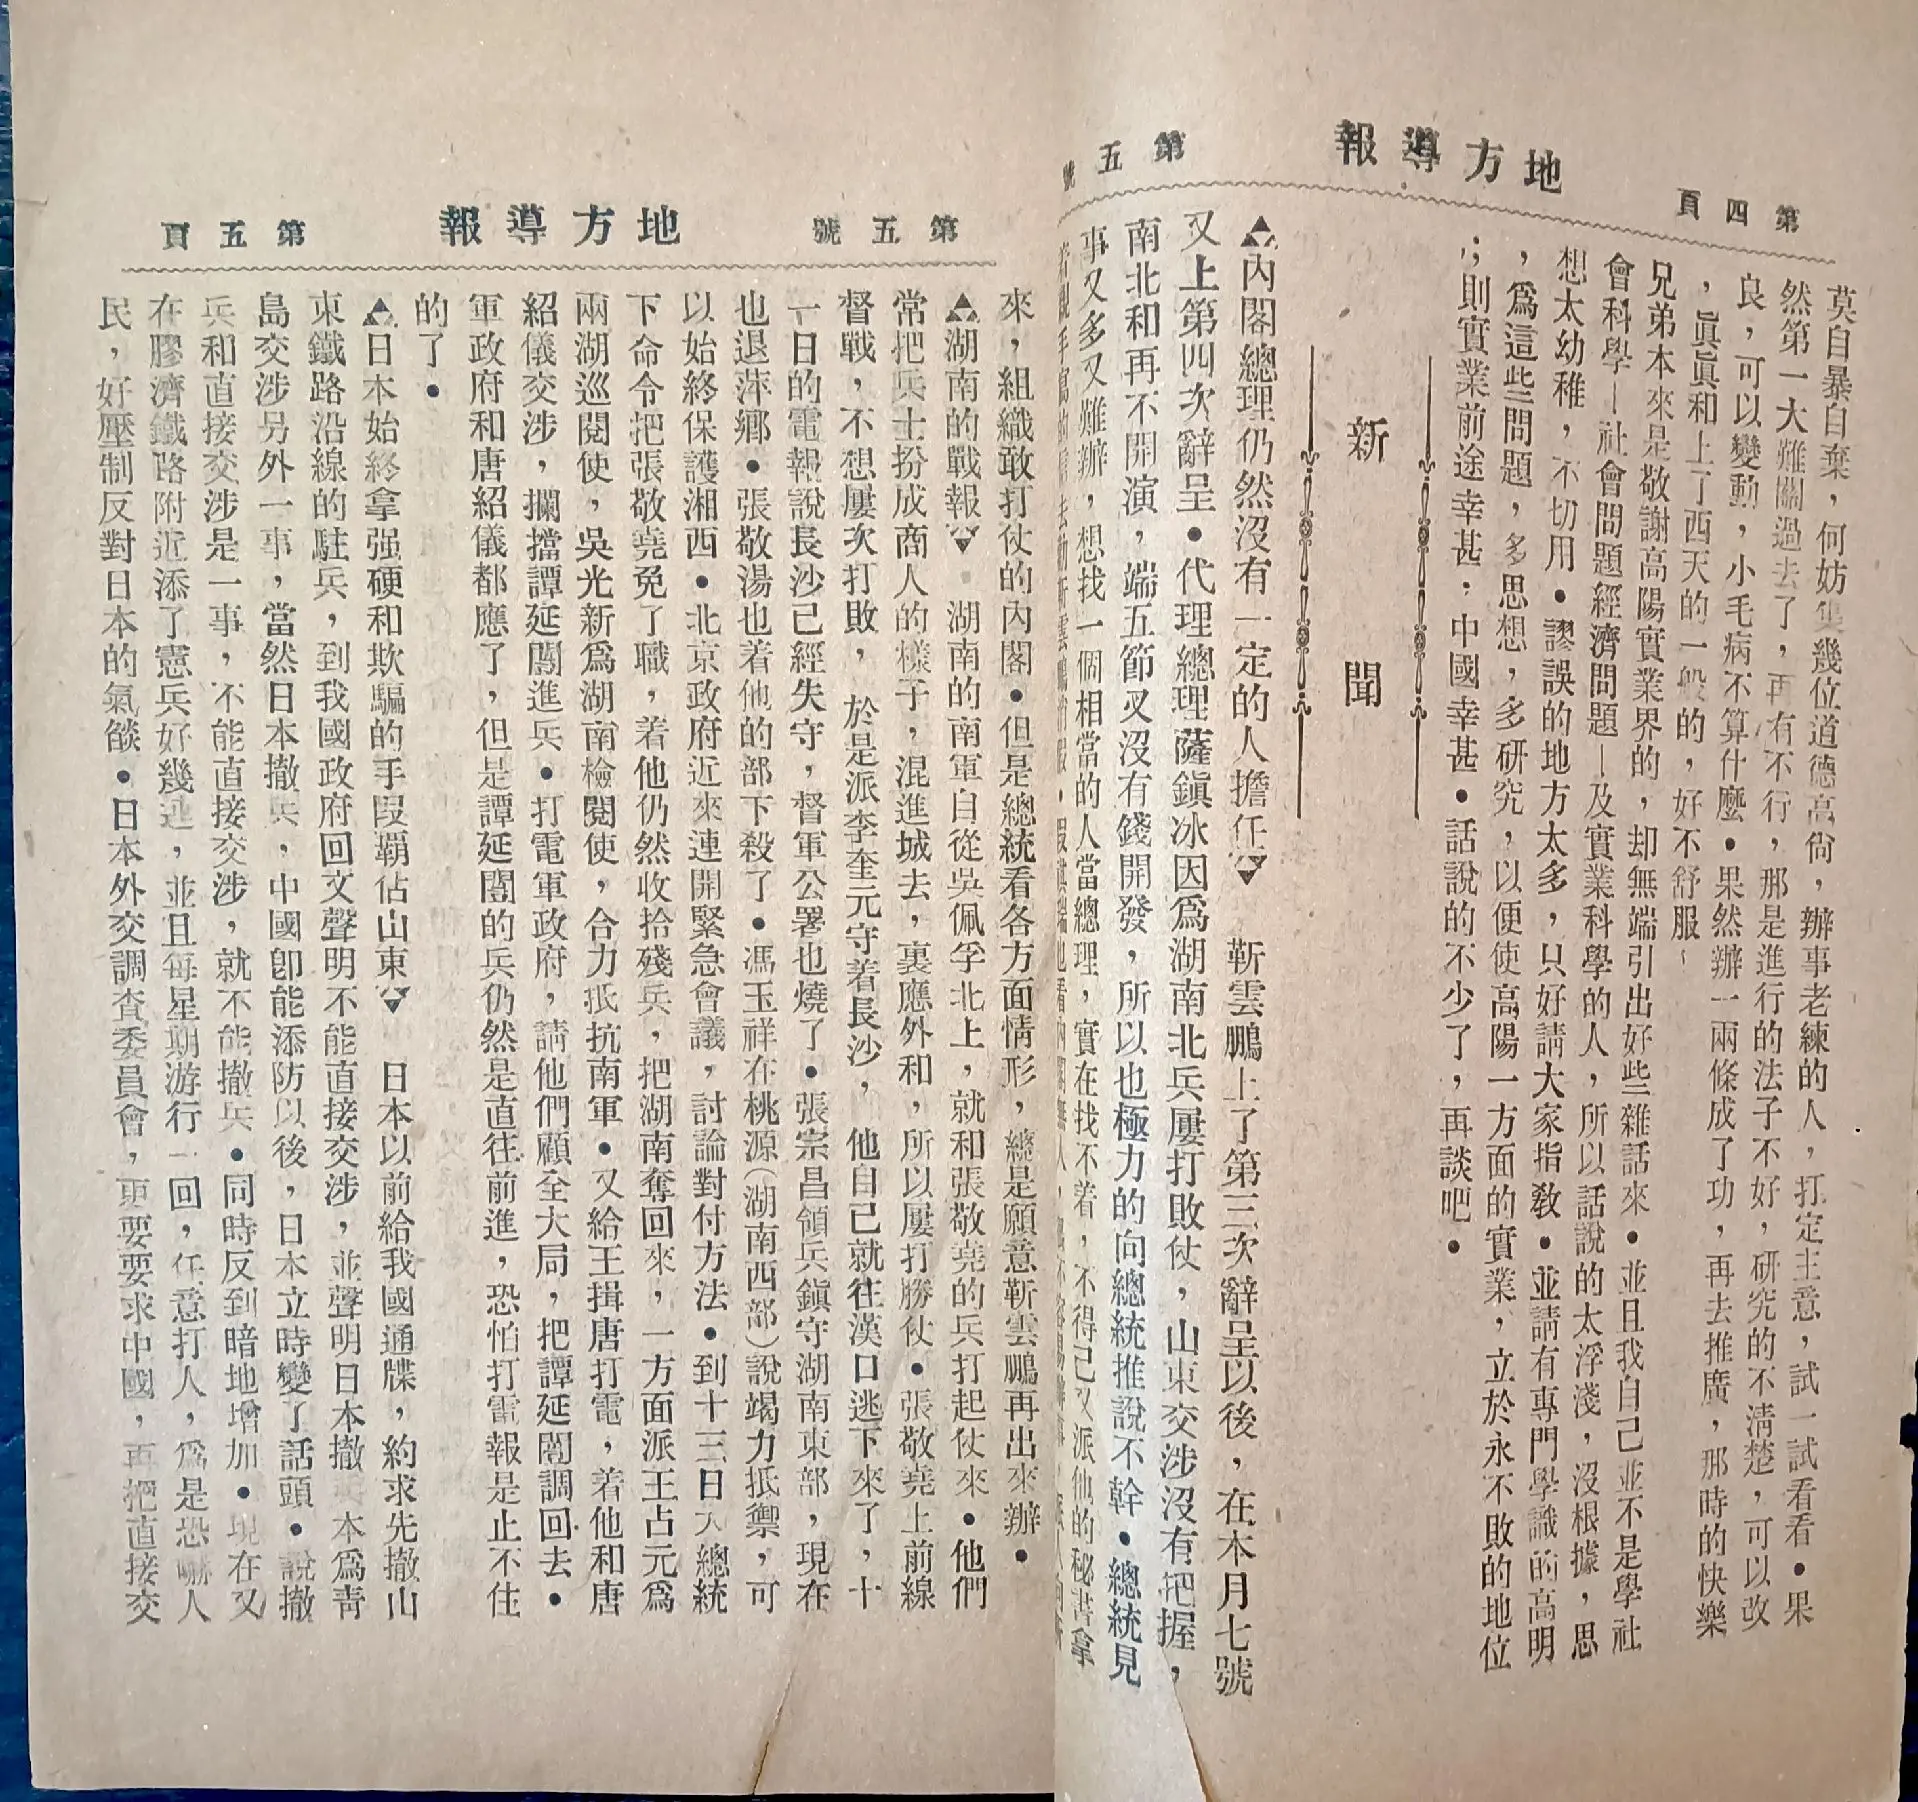 第四頁
地方導報
第五號
莫自暴自棄，何妨集幾位道德高尙，辦事老練的人，打定主意，試一試看看。果
然第一大難關過去了，再有不行，那是進行的法子不好，研究的不淸楚，可以改
良，可以變動，小毛病不算什麼。果然辦一兩條成了功，再去推廣，那時的快樂
，眞眞和上了西天的一般的，好不舒服
兄弟本來是敬謝高陽實業界的，却無端引出好些雜話來。並且我自己並不是學社
會科學—社會問題經濟問題—及實業科學的人，所以話說的太浮淺，沒根據，思
想太幼稚，不切用。謬誤的地方太多，只好請大家指敎。並請有專門學識的高明
，爲這些問題，多思想，多研究，以便使高陽一方面的實業，立於永不敗的地位
；則實業前途幸甚；中國幸甚。話說的不少了，再談吧。
新聞
▲內閣總理仍然沒有一定的人擔任▼　靳雲鵬上了第三次辭呈以後，在本月七號
又上第四次辭呈。代理總理薩鎭冰因爲湖南北兵屢打敗仗，山東交涉沒有把握，
南北和再不開演，端五節又沒有錢開發，所以也極力的向總統推說不幹。總統見
事又多又難辦，想找一個相當的人當總理，實在找不着，不得已又派他的秘書拿
第五號
地方導報
第五頁
來，組織敢打仗的內閣。但是總統看各方面情形，總是願意靳雲鵬再出來辦。
▲湖南的戰報▼　湖南的南軍自從吳佩孚北上，就和張敬堯的兵打起仗來。他們
常把兵士扮成商人的樣子，混進城去，裏應外和，所以屢打勝仗。張敬堯上前線
督戰，不想屢次打敗，於是派李奎元守着長沙，他自己就往漢口逃下來了，十
一日的電報說長沙已經失守，督軍公署也燒了。張宗昌領兵鎭守湖南東部，現在
也退萍鄉。張敬湯也着他的部下殺了。馮玉祥在桃源（湖南西部）說竭力抵禦，可
以始終保護湘西。北京政府近來連開緊急會議，討論對付方法。到十三日大總統
下命令把張敬堯免了職，着他仍然收拾殘兵，把湖南奪回來，一方面派王占元爲
兩湖巡閱使，吳光新爲湖南檢閱使，合力抵抗南軍。又給王揖唐打電，着他和唐
紹儀交涉，攔擋譚延闓進兵。打電軍政府，請他們顧全大局，把譚延闓調回去。
軍政府和唐紹儀都應了，但是譚延闓的兵仍然是直往前進，恐怕打電報是止不住
的了。
▲日本始終拿强硬和欺騙的手段霸佔山東▼　日本以前給我國通牒，約求先撤山
東鐵路沿線的駐兵，到我國政府回文聲明不能直接交涉，並聲明日本撤兵本爲靑
島交涉另外一事，當然日本撤兵，中國卽能添防以後，日本立時變了話頭。說撤
兵和直接交涉是一事，不能直接交涉，就不能撤兵。同時反到暗地增加。現在又
在膠濟鐵路附近添了憲兵好幾連，並且每星期游行一回，任意打人，爲是恐嚇人
民，好壓制反對日本的氣燄。日本外交調查委員會，更要要求中國，再把直接交